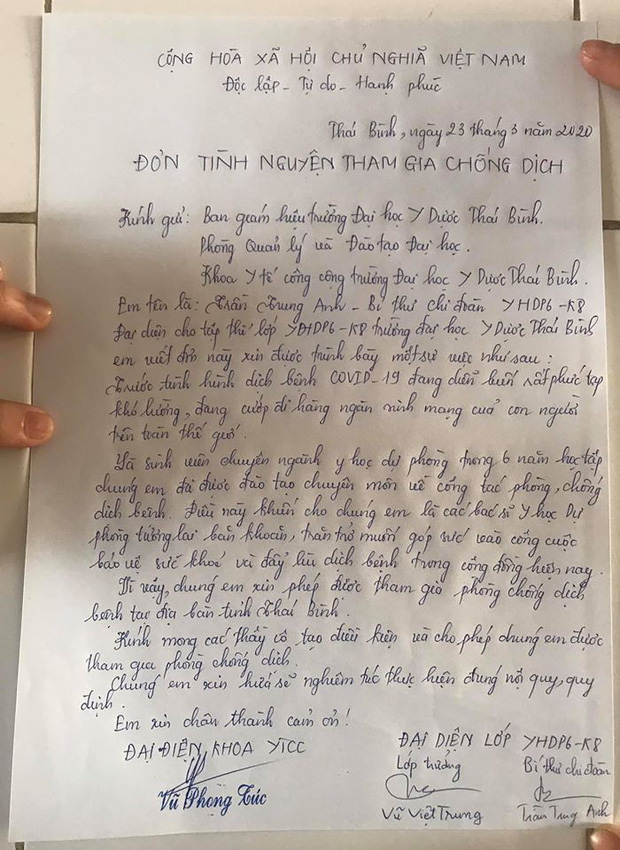 CỘNG HÒA XÃ HỘI CHỦ NGHĨA VIỆT NAM
Độc lập - Tự do - Hạnh phúc
Thái Bình, ngày 23 tháng 3 năm 2020
ĐƠN TÌNH NGUYỆN THAM GIA CHỐNG DỊCH
Kính gửi: Ban giám hiệu trường Đại học Y Dược Thái Bình.
Phòng Quản lý và Đào tạo Đại học.
Khoa Y tế công cộng trường Đại học Y Dược Thái Bình.
Em tên là: Trần Trung Anh - Bí thư chi đoàn YHDP6-K8
Đại diện cho tập thể lớp YHDP6-K8 trường đại học Y Dược Thái Bình
em viết đơn này xin được trình bày một sự việc như sau:
Trước tình hình dịch bệnh COVID-19 đang diễn biến rất phức tạp
khó lường, đang cướp đi hàng ngàn sinh mạng của con người
trên toàn thế giới.
Là sinh viên chuyên ngành y học dự phòng trong 6 năm học tập
chúng em đã được đào tạo chuyên môn về công tác phòng, chống
dịch bệnh. Điều này khiến cho chúng em là các bác sĩ Y học Dự
phòng tương lai băn khoăn, trăn trở muốn góp sức vào công cuộc
bảo vệ sức khoẻ và đẩy lùi dịch bệnh trong cộng đồng hiện nay.
Vì vậy, chúng em xin phép được tham gia phòng chống dịch
bệnh tại địa bàn tỉnh Thái Bình.
Kính mong các thầy cô tạo điều kiện và cho phép chúng em được
tham gia phòng chống dịch.
Chúng em xin hứa sẽ nghiêm túc thực hiện đúng nội quy, quy
định.
Em xin chân thành cảm ơn!
ĐẠI DIỆN KHOA YTCC
Vũ Phong Túc
ĐẠI DIỆN LỚP YHDP6-K8
Lớp trưởng Bí thư chi đoàn
Vũ Việt Trung Trần Trung Anh